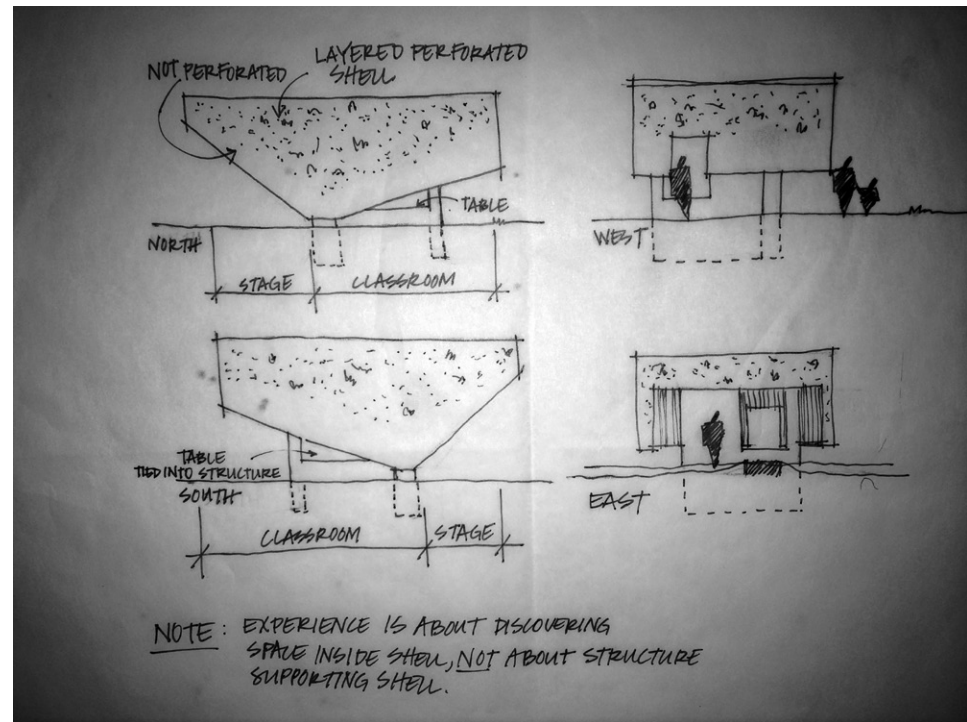 NOT PERFORATED
LAYERED PERFORATED
SHELL
TABLE
NORTH
STAGE
CLASSROOM
WEST
TABLE
TIED INTO STRUCTURE
SOUTH
CLASSROOM
STAGE
EAST
NOTE: EXPERIENCE IS ABOUT DISCOVERING
SPACE INSIDE SHELL, NOT ABOUT STRUCTURE
SUPPORTING SHELL.